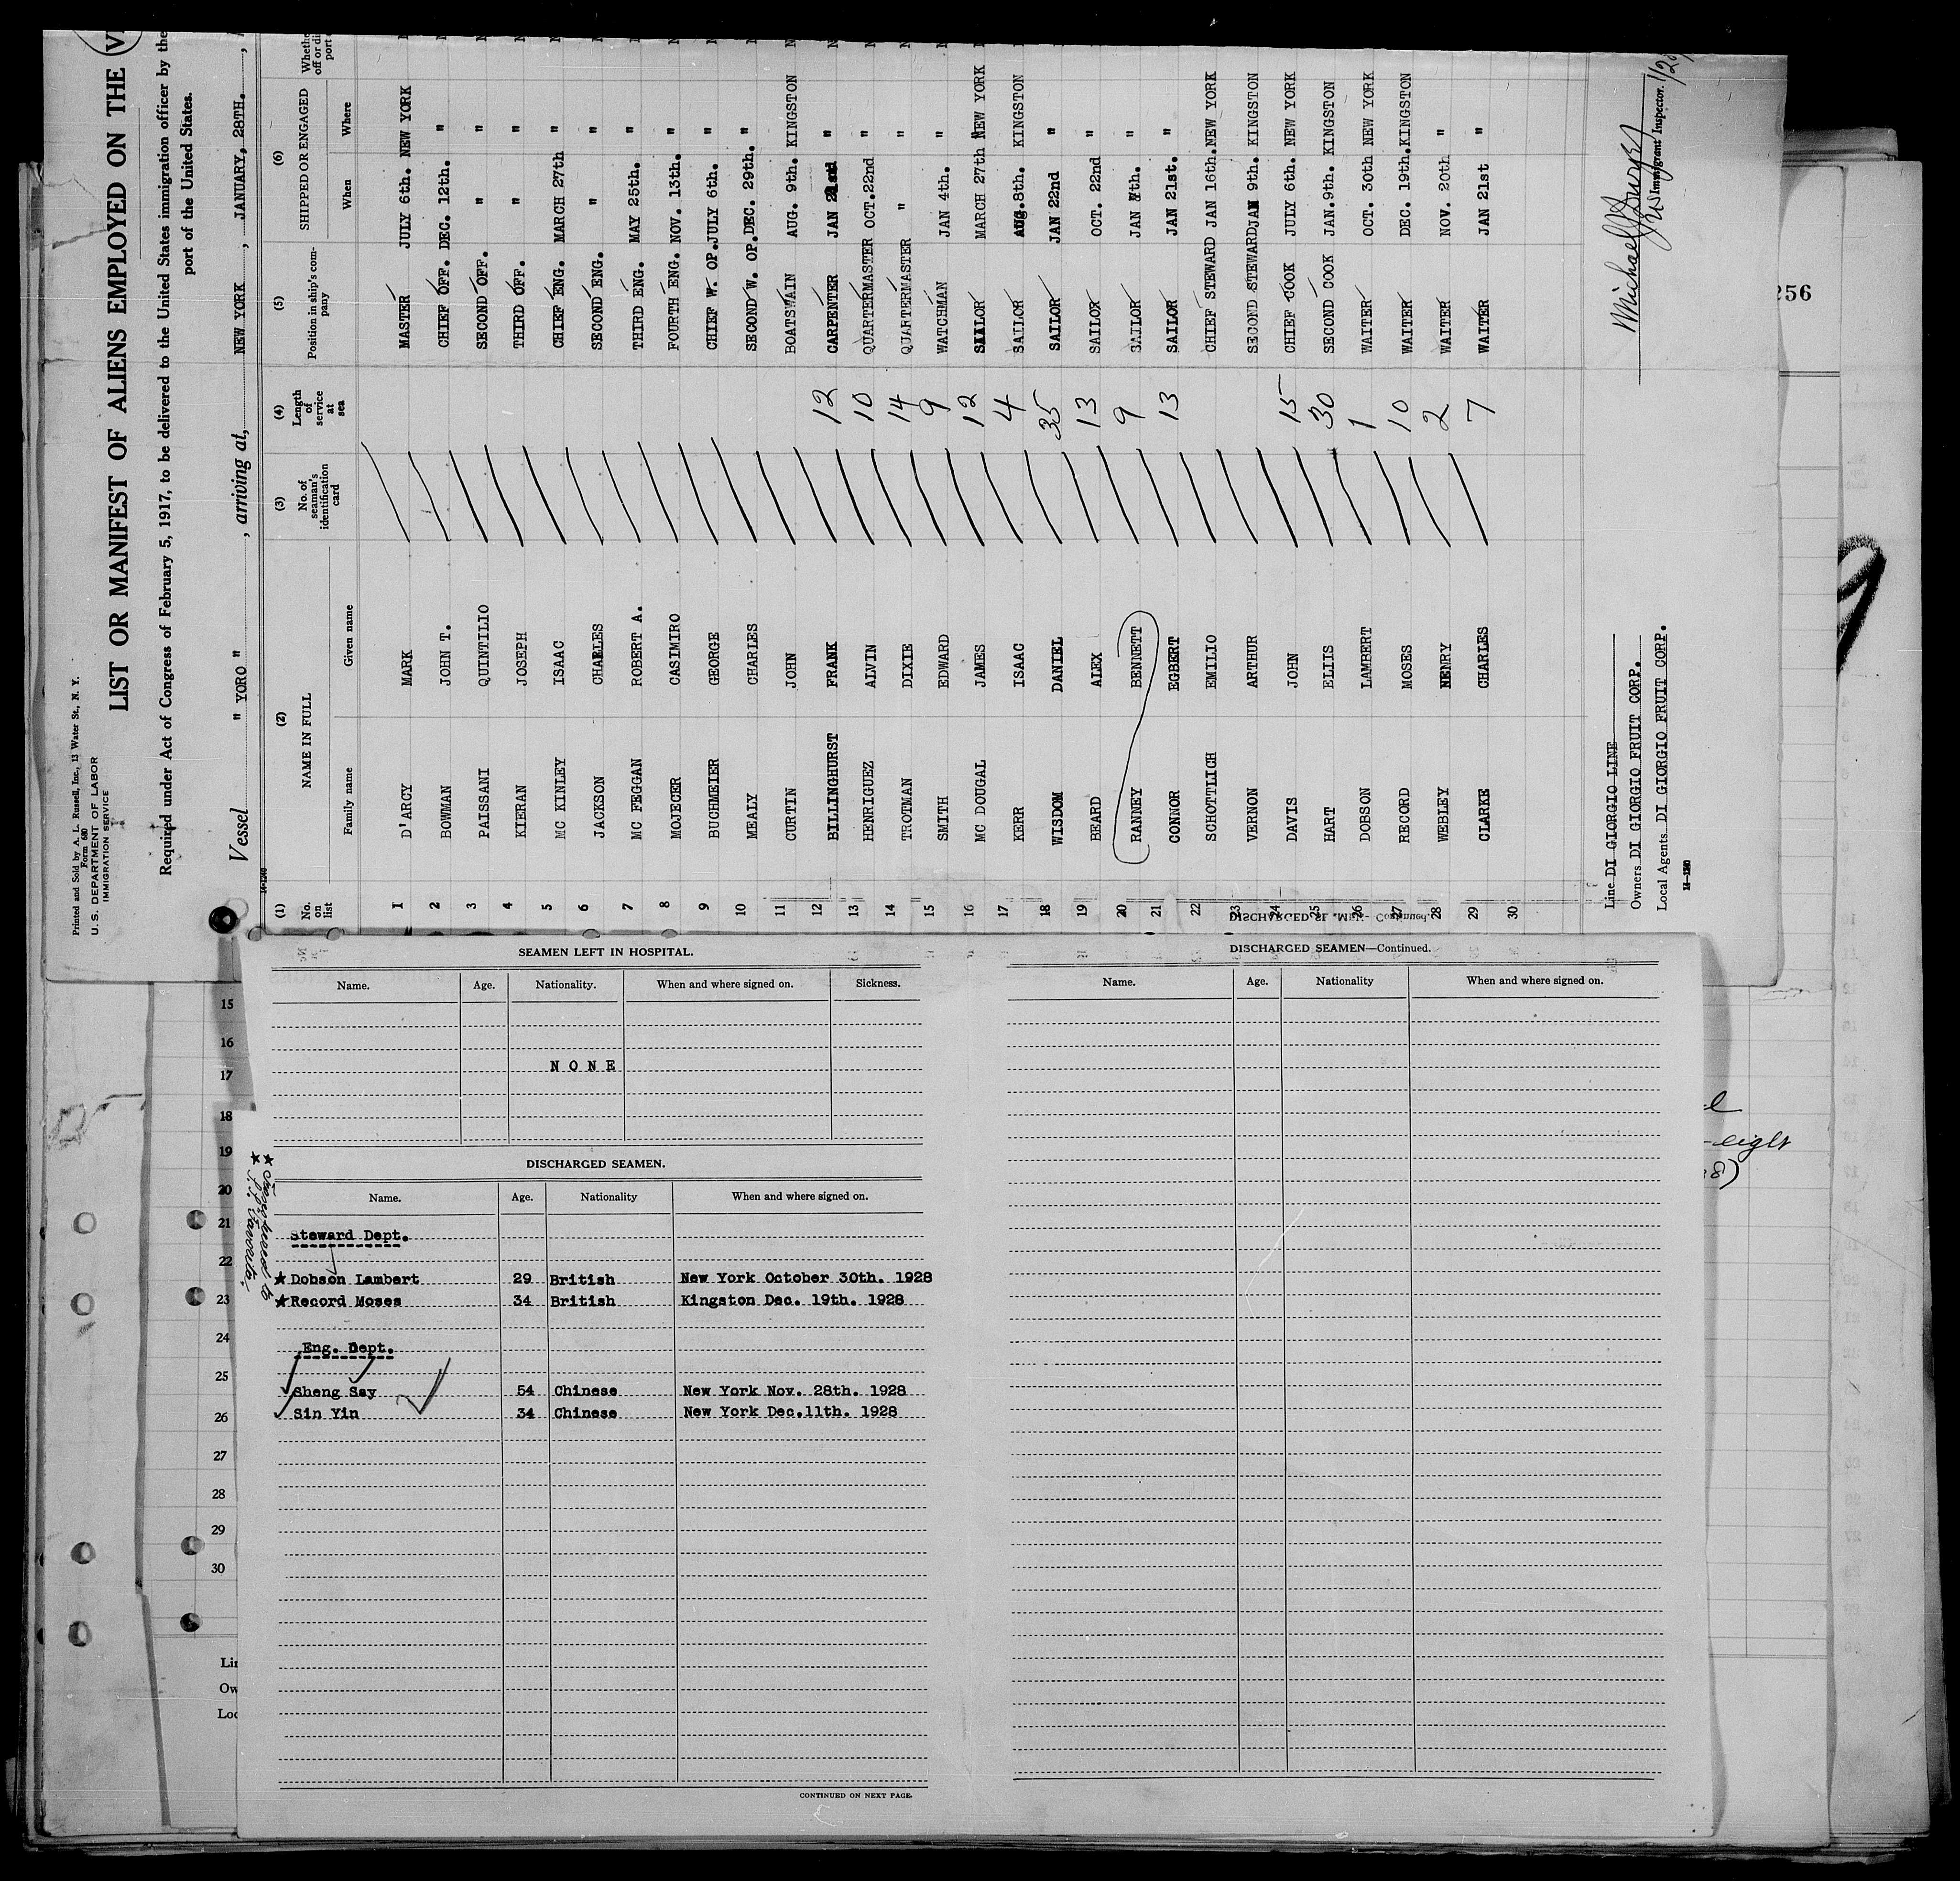 Printed and Sold by A. L. Russell, Inc., 13 Water St., N. Y.
Form 680
U. S. DEPARTMENT OF LABOR
IMMIGRATION SERVICE
LIST OR MANIFEST OF ALIENS EMPLOYED ON THE
Required under Act of Congress of February 5, 1917, to be delivered to the United States immigration officer by the
port of the United States.
Vessel " YORO " , arriving at, NEW YORK , JANUARY, 28TH. ,
(1) (2) (3) (4) (5) (6)
No. on list NAME IN FULL No. of seaman's identification card Length of service at sea Position in ship's company SHIPPED OR ENGAGED
Family name Given name When Where
1 D'ARCY MARK MASTER JULY 6th. NEW YORK
2 BOWMAN JOHN T. CHIEF OFF. DEC. 12th. "
3 PAISSANI QUINTILIO SECOND OFF. " "
4 KIERAN JOSEPH THIRD OFF. " "
5 MC KINLEY ISAAC CHIEF ENG. MARCH 27th "
6 JACKSON CHARLES SECOND ENG. " "
7 MC FEGGAN ROBERT A. THIRD ENG. MAY 25th. "
8 MOJECER CASIMIRO FOURTH ENG. NOV. 13th. "
9 BUCHMEIER GEORGE CHIEF W. OP. JULY 6th. "
10 MEALY CHARLES SECOND W. OP. DEC. 29th. "
11 CURTIN JOHN BOATSWAIN AUG. 9th. KINGSTON
12 BILLINGHURST FRANK 12 CARPENTER JAN 21st "
13 HENRIGUEZ ALVIN 10 QUARTERMASTER OCT.22nd "
14 TROTMAN DIXIE 14 QUARTERMASTER " "
15 SMITH EDWARD 9 WATCHMAN JAN 4th. "
16 MC DOUGAL JAMES 12 SAILOR MARCH 27th NEW YORK
17 KERR ISAAC 4 SAILOR AUG.8th. KINGSTON
18 WISDOM DANIEL 35 SAILOR JAN 22nd "
19 BEARD ALEX 13 SAILOR OCT. 22nd "
20 RANNEY BENNETT 9 SAILOR JAN 4th. "
21 CONNOR EGBERT 13 SAILOR JAN 21st. "
22 SCHOTTLICH EMILIO CHIEF STEWARD JAN 16th. NEW YORK
23 VERNON ARTHUR SECOND STEWARD JAN 9th. KINGSTON
24 DAVIS JOHN 15 CHIEF COOK JULY 6th. NEW YORK
25 HART ELLIS 30 SECOND COOK JAN.9th. KINGSTON
26 DOBSON LAMBERT 1 WAITER OCT. 30th NEW YORK
27 RECORD MOSES 10 WAITER DEC. 19th. KINGSTON
28 WEBLEY HENRY 2 WAITER NOV. 20th "
29 CLARKE CHARLES 7 WAITER JAN 21st "
30
Line DI GIORGIO LINE
Owners DI GIORGIO FRUIT CORP.
Local Agents DI GIORGIO FRUIT CORP.
Immigrant Inspector.
256
SEAMEN LEFT IN HOSPITAL.
Name. Age. Nationality. When and where signed on. Sickness.
NONE
DISCHARGED SEAMEN.
Name. Age. Nationality When and where signed on.
Steward Dept.
★ Dobson Lambert 29 British New York October 30th. 1928
★ Record Moses 34 British Kingston Dec. 19th. 1928
Eng. Dept.
Sheng Say 54 Chinese New York Nov. 28th. 1928
Sin Yin 34 Chinese New York Dec.11th. 1928
CONTINUED ON NEXT PAGE.
DISCHARGED SEAMEN—Continued.
Name. Age. Nationality When and where signed on.
15
16
17
18
19
20
21
22
23
24
25
26
27
28
29
30